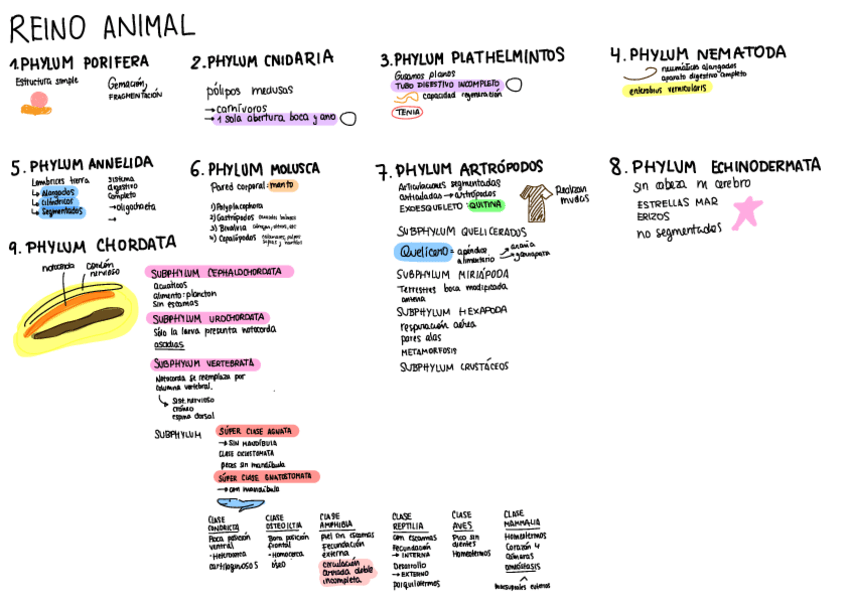 REINO ANIMAL
1. PHYLUM PORIFERA
Estructura simple
Gemación,
FRAGMENTACIÓN
2. PHYLUM CNIDARIA
pólipos medusas
→ carnívoros
→ 1 sola abertura, boca y ano
3. PHYLUM PLATHELMINTOS
Gusanos planos
TUBO DIGESTIVO INCOMPLETO
capacidad regeneración
TENIA
4. PHYLUM NEMATODA
neumáticos alargados
aparato digestivo completo
enterobius vermicularis
5. PHYLUM ANNELIDA
Lombrices tierra
↳ Alargados
↳ Cilíndricos
↳ Segmentados
sistema
digestivo
completo
→ oligochaeta
→
6. PHYLUM MOLUSCA
Pared corporal: manto
1) Polyplacophora
2) Gastrópodos
3) Bivalvia
4) Cepalópodos
7. PHYLUM ARTRÓPODOS
Articulaciones segmentadas
→ artrópodos
EXOESQUELETO: QUITINA
Realizan
mudas
SUBPHYLUM QUELICERADOS
Quelícero = apéndice
alimentario
→ araña
→ garrapata
SUBPHYLUM MIRIÁPODA
Terrestres boca modificada
antena
SUBPHYLUM HEXAPODA
respiración aérea
pares alas
METAMORFOSIS
SUBPHYLUM CRUSTÁCEOS
8. PHYLUM ECHINODERMATA
sin cabeza ni cerebro
ESTRELLAS MAR
ERIZOS
no segmentados
9. PHYLUM CHORDATA
notocorda
cordón
nervioso
SUBPHYLUM CEPHALOCHORDATA
acuáticos
alimento: plancton
sin escamas
SUBPHYLUM UROCHORDATA
Sólo la larva presenta notocorda
ascidias
SUBPHYLUM VERTEBRATA
Notocorda se reemplaza por
columna vertebral.
↳ Sist. nervioso
cráneo
espina dorsal
SUBPHYLUM
SÚPER CLASE AGNATA
→ SIN MANDÍBULA
CLASE CICLOSTOMATA
peces sin mandíbula
SÚPER CLASE GNATOSTOMATA
→ con mandíbula
CLASE
CONDRICTIA
Boca posición
ventral
- Heterocerca
cartilaginosos
CLASE
OSTEOICTIA
Boca posición
frontal
- Homocerca
ÓSEO
CLASE
AMPHIBIA
piel sin escamas
Fecundación
externa
circulación
cerrada doble
incompleta
CLASE
REPTILIA
con escamas
Fecundación
→ INTERNA
Desarrollo
→ EXTERNO
poiquilotermos
CLASE
AVES
Pico sin
dientes
Homeotermos
CLASE
MAMMALIA
Homeotermos
Corazón 4
cámaras